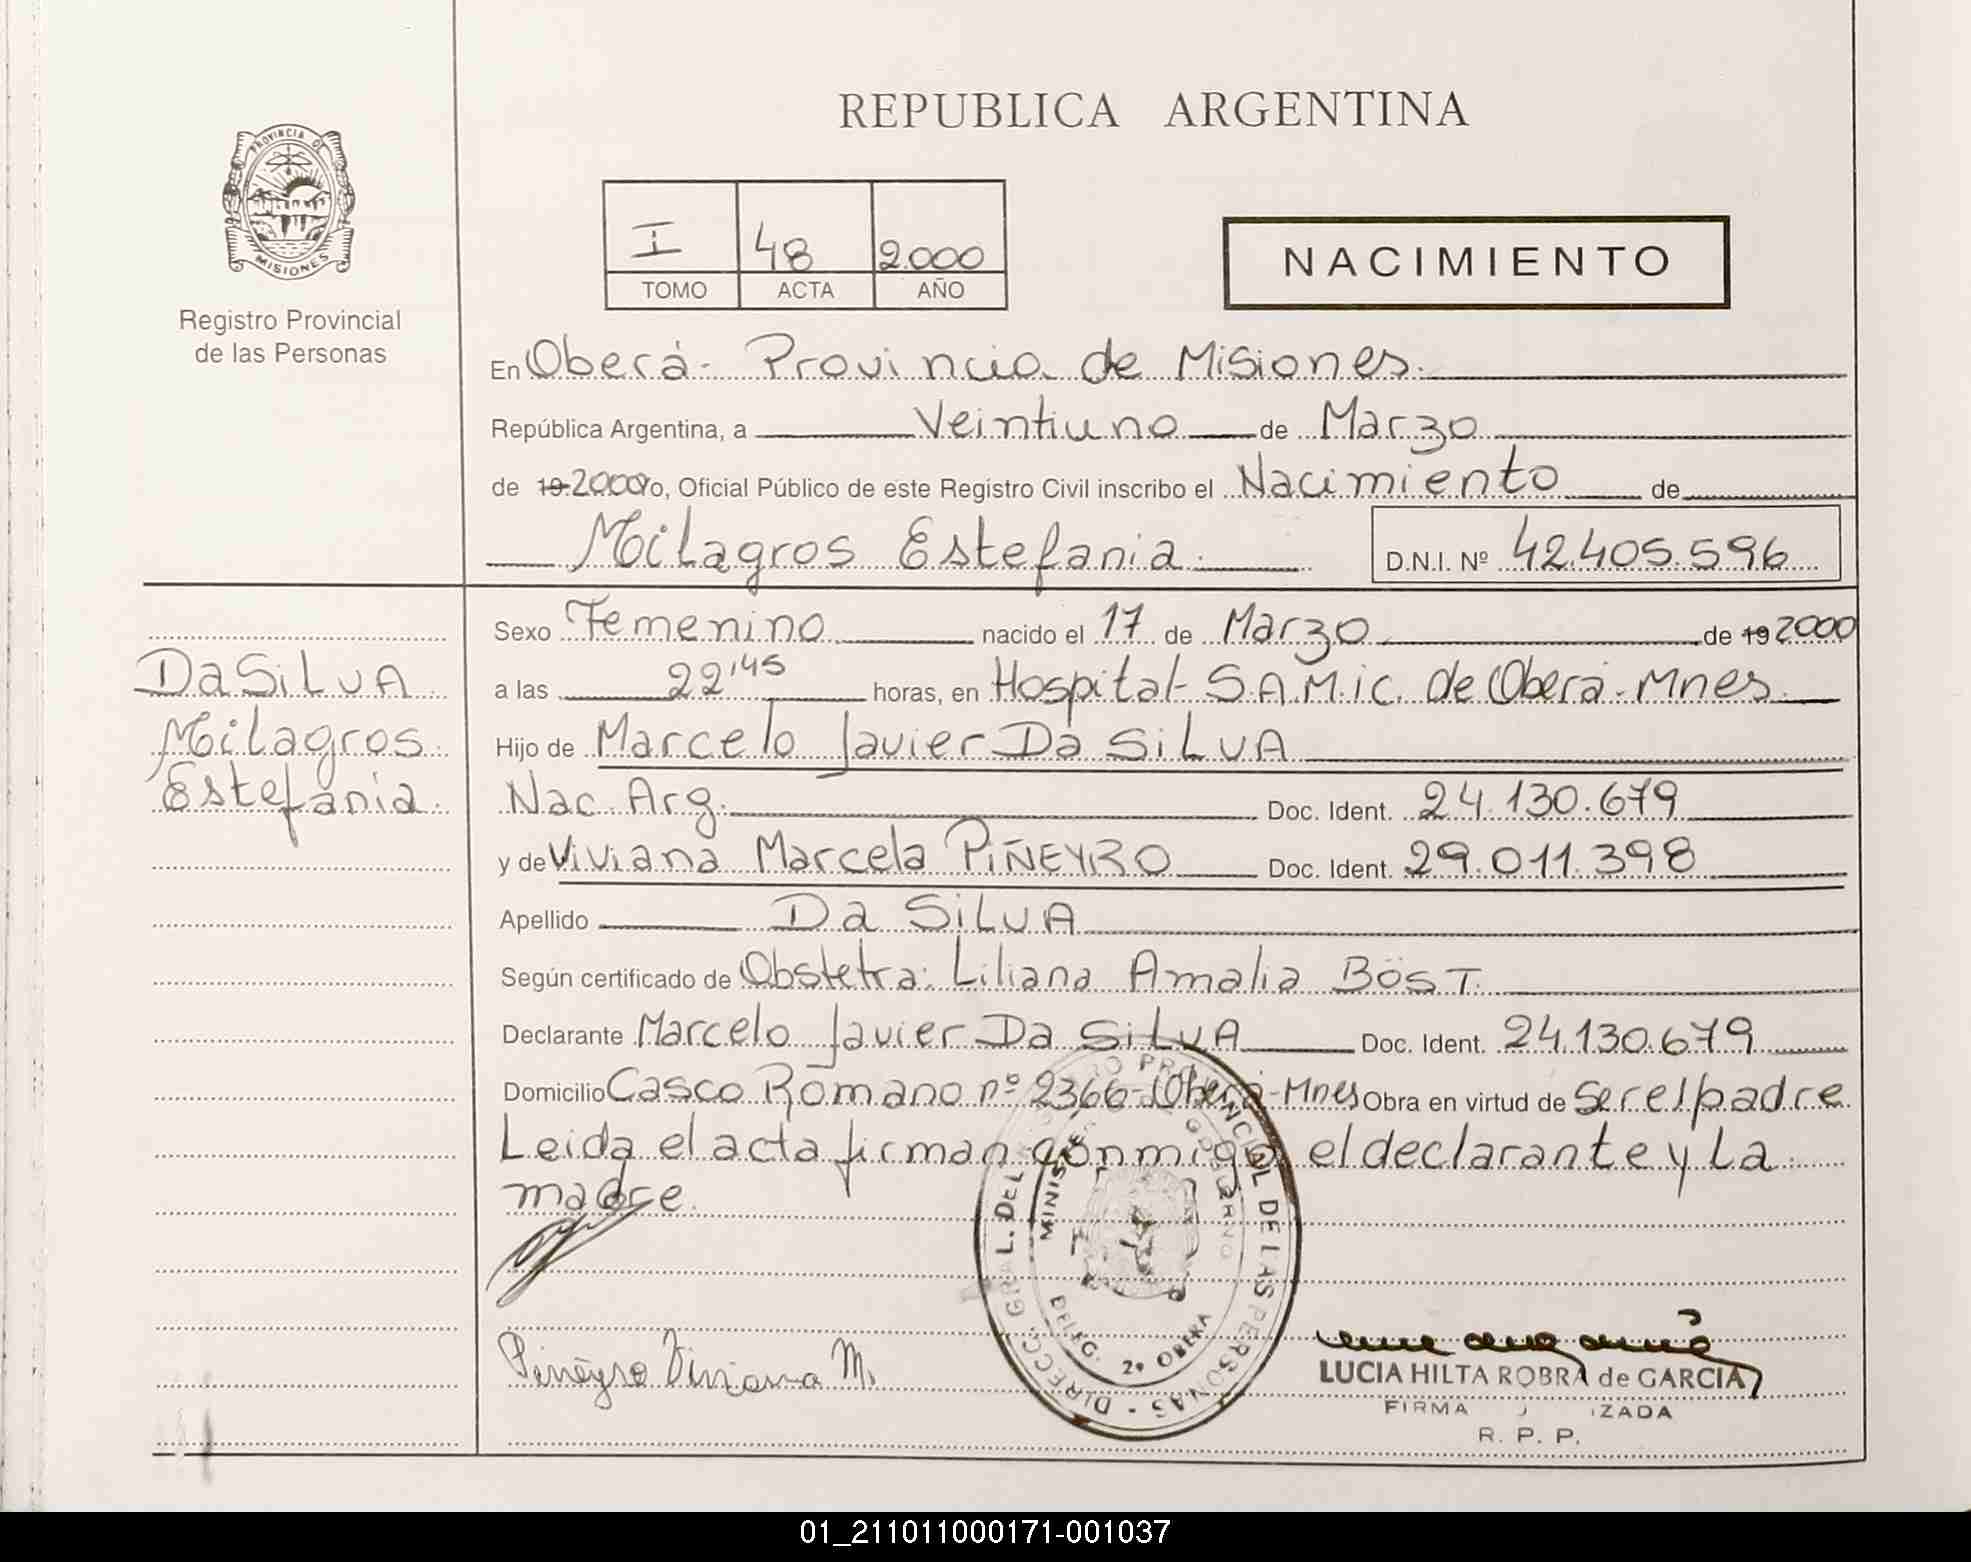 REPUBLICA ARGENTINA
PROVINCIA DE
MISIONES
Registro Provincial
de las Personas
I 48 2.000
TOMO ACTA AÑO
NACIMIENTO
En Oberá - Provincia de Misiones.
República Argentina, a Veintiuno de Marzo
de 19 2000 yo, Oficial Público de este Registro Civil inscribo el Nacimiento de
Milagros Estefania. D.N.I. Nº 42.405.596
Da SiLVA
Milagros
Estefania.
Sexo Femenino nacido el 17 de Marzo de 19 2000
a las 22'45 horas, en Hospital S.A.M.ic. de Oberá - Mnes.
Hijo de Marcelo Javier Da SiLVA
Nac. Arg. Doc. Ident. 24.130.679
y de Viviana Marcela PIÑEYRO Doc. Ident. 29.011.398
Apellido Da SiLVA
Según certificado de Obstetra: Liliana Amalia BÖST.
Declarante Marcelo Javier Da SiLVA Doc. Ident. 24.130.679
Domicilio Casco Romano nº 2366 - Oberá - Mnes Obra en virtud de Ser el padre
Leida el acta firman conmigo, el declarante y La
madre.
DIRECC. GRAL. DEL REGISTRO PROVINCIAL DE LAS PERSONAS
MINIS DE GOBIERNO
DELEG. 2ª OBERA
Piñeyro Viviana M.
LUCIA HILTA ROBRA de GARCIA
FIRMA IZADA
R. P. P.
01_211011000171-001037